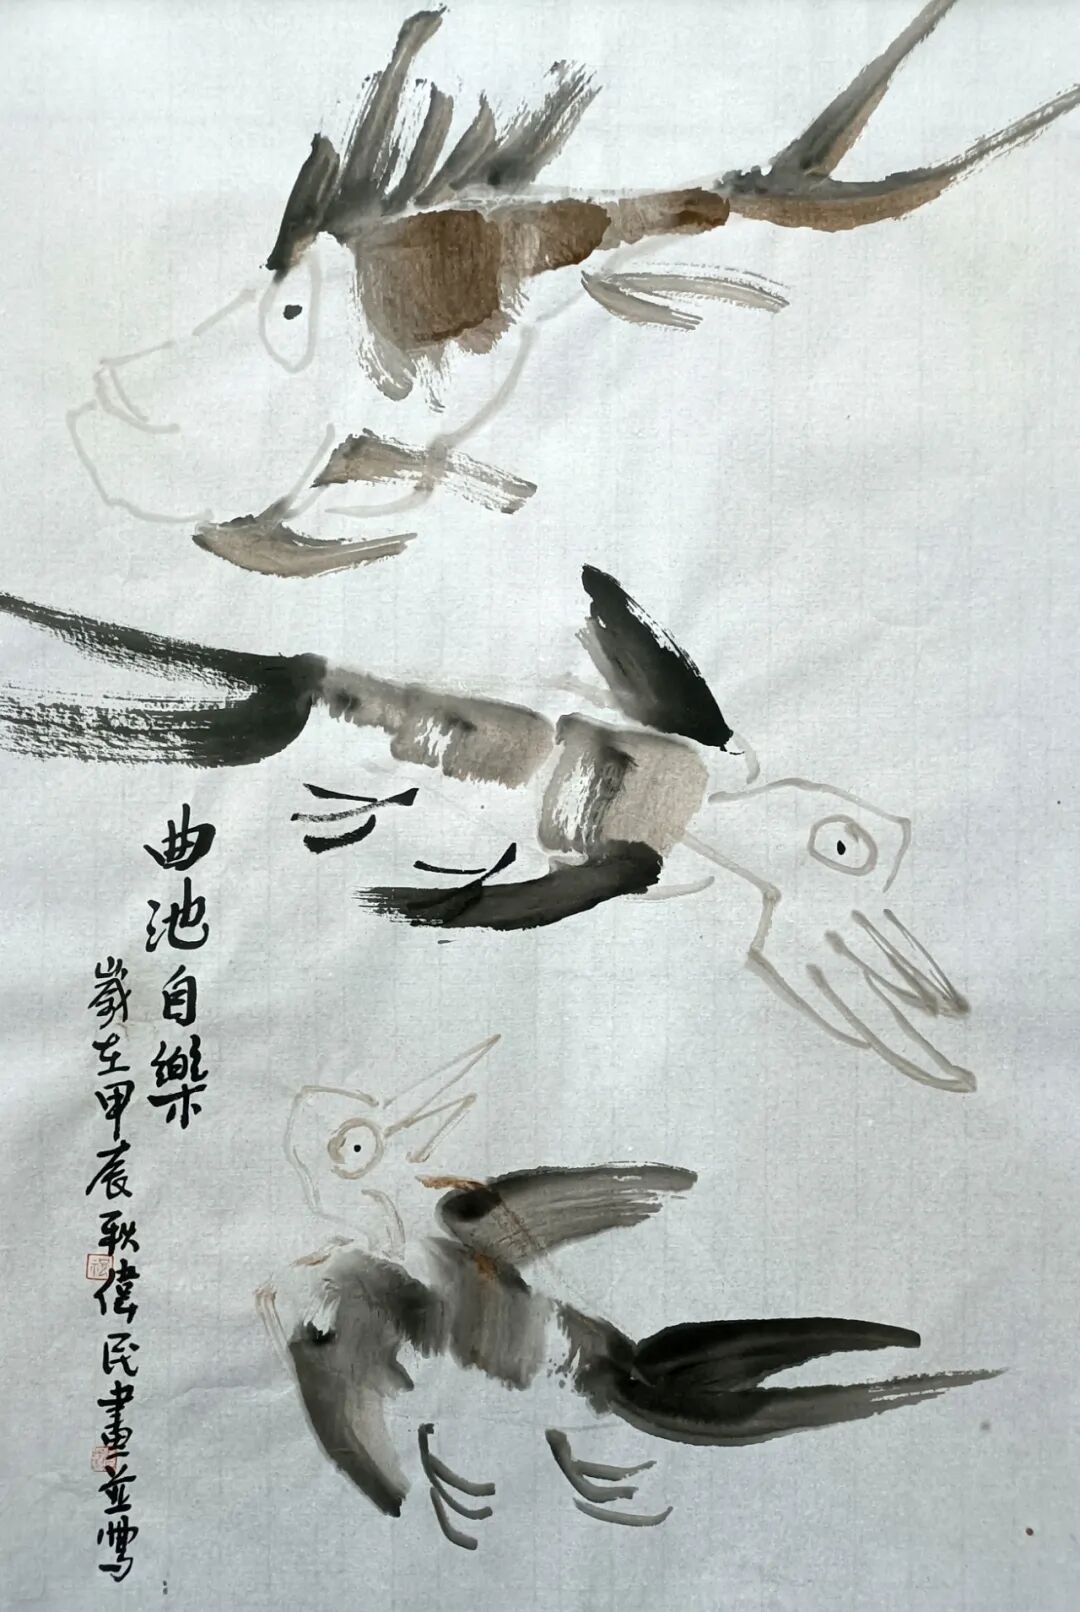 曲池自樂
歲在甲辰秋偉民畫並寫